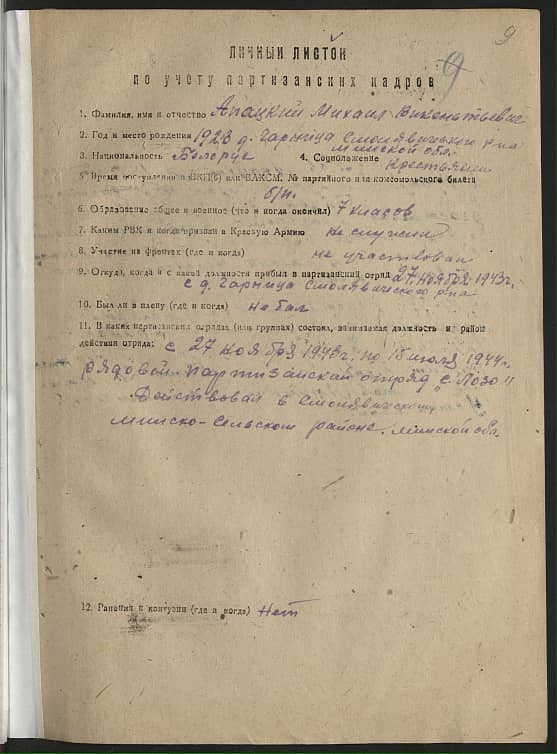 9
9
ЛИЧНЫЙ ЛИСТОК
по учету партизанских кадров
1. Фамилия, имя и отчество Апацкий Михаил Викентьевич
2. Год и место рождения 1923 д. Гарница Смолявичский р-на
Минской обл.
3. Национальность Белорус 4. Соцположение Крестьянин
5. Время поступления в ВКП(б) или ВЛКСМ, № партийного или комсомольского билета
б/п.
6. Образование общее и военное (что и когда окончил) 7 класов
7. Каким РВК и когда призван в Красную Армию не служил
8. Участие на фронтах (где и когда) не участвовал
9. Откуда, когда и с какой должности прибыл в партизанский отряд 27. ноября 1943г.
с д. Гарница Смолявичского р-на
10. Был ли в плену (где и когда) не был
11. В каких партизанских отрядах (или группах) состоял, занимаемая должность и район
действия отряда: с 27 ноября 1943г. по 15 июля 1944г.
рядовой партизанский отряд "С Лозо"
Действовал в Смолявичском
Минско-Сельском районе. Минской обл.
12. Ранения и контузии (где и когда) Нет